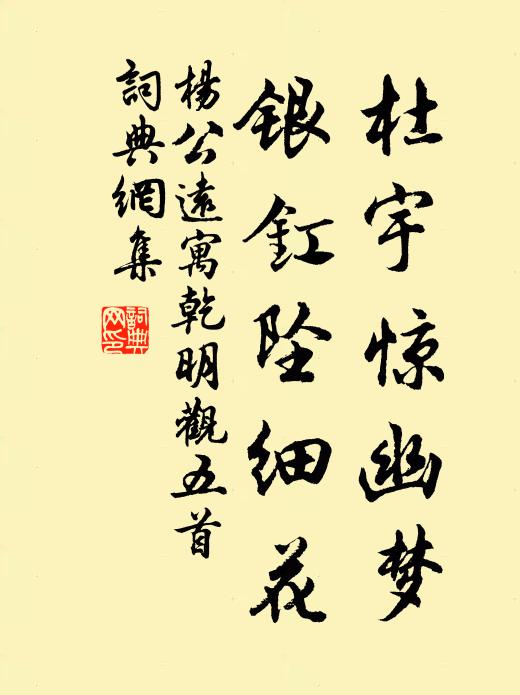 杜宇惊幽梦
银釭坠细花
楊公遠寓乾明觀五首
詞典網集
詞典网印